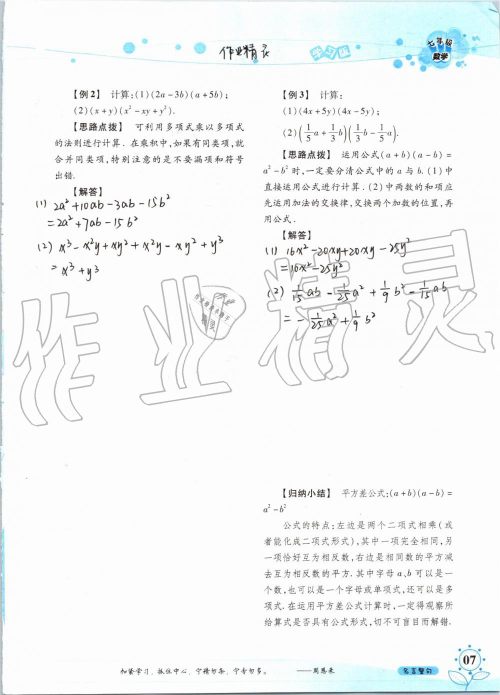 作业精灵
学习版
七年级
数学
【例2】 计算:(1)(2a-3b)(a+5b);
(2)(x+y)(x²-xy+y²).
【思路点拨】 可利用多项式乘以多项式
的法则进行计算.在乘积中,如果有同类项,就
合并同类项,特别注意的是不要漏项和符号
出错.
【解答】
(1) 2a²+10ab-3ab-15b²
=2a²+7ab-15b²
(2) x³-x²y+xy²+x²y-xy²+y³
=x³+y³
【例3】 计算:
(1)(4x+5y)(4x-5y);
(2)(1/5a+1/3b)(1/3b-1/5a).
【思路点拨】 运用公式(a+b)(a-b)=
a²-b²时,一定要分清公式中的a与b.(1)中
直接运用公式进行计算.(2)中两数的和项应
先运用加法的交换律,交换两个加数的位置,再
用公式.
【解答】
(1) 16x²-20xy+20xy-25y²
=16x²-25y²
(2) 1/15ab-1/25a²+1/9b²-1/15ab
=-1/25a²+1/9b²
作业精灵
【归纳小结】 平方差公式:(a+b)(a-b)=
a²-b²
公式的特点:左边是两个二项式相乘(或
者能化成二项式形式),其中一项完全相同,另
一项恰好互为相反数,右边是相同数的平方减
去互为相反数的平方.其中字母a,b可以是一
个数,也可以是一个字母或单项式,还可以是多
项式.在运用平方差公式计算时,一定得观察所
给算式是否具有公式形式,切不可盲目而解错.
07
名言警句
加紧学习,抓住中心,宁精勿杂,宁专勿多。 ——周恩来